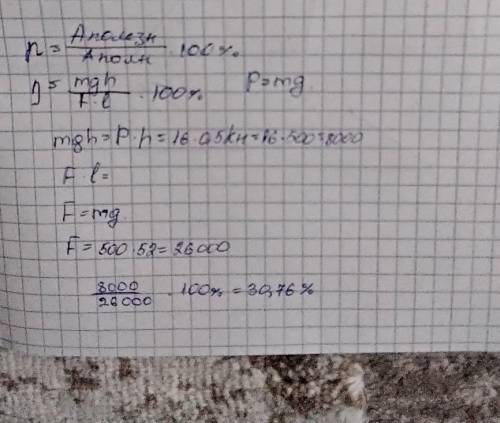 η = Аполезн / Аполн · 100%
η = mgh / F·l · 100% P=mg
mgh = P·h = 16·0,5кн = 16·500=8000
F·l=
F=mg
F= 500·52= 26000
8000 / 26000 · 100% = 30,76%